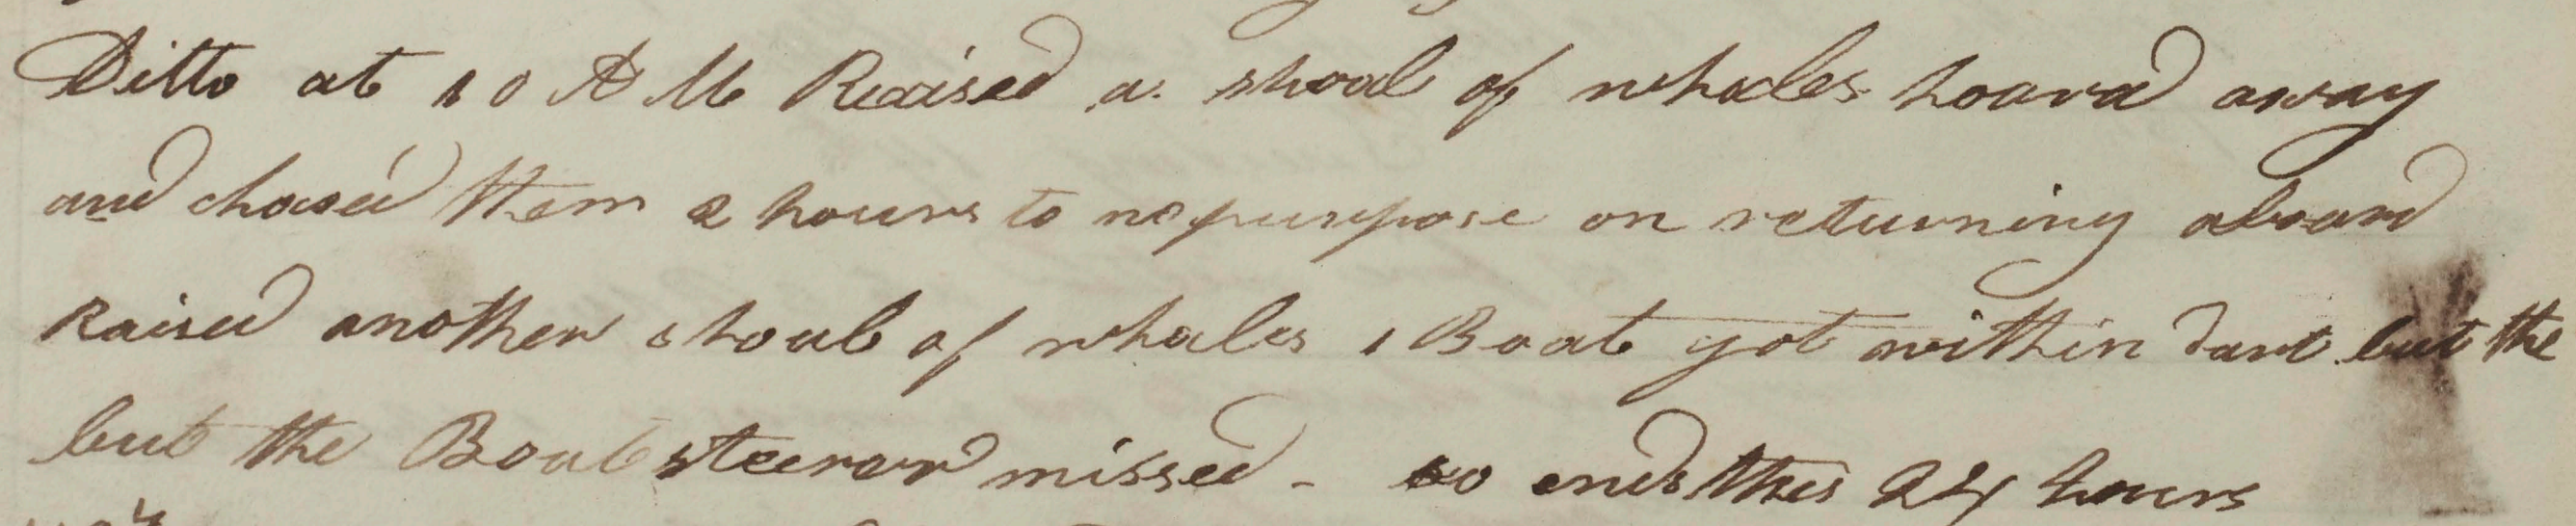 Ditto at 10 A M Reaised a shoal of whales hoard away
and chased them 2 hours to no purpose on returning aboard
Raised another shoal of whales 1 Boat got within dart but the
but the Boatsteerar missed - so ends this 24 hours